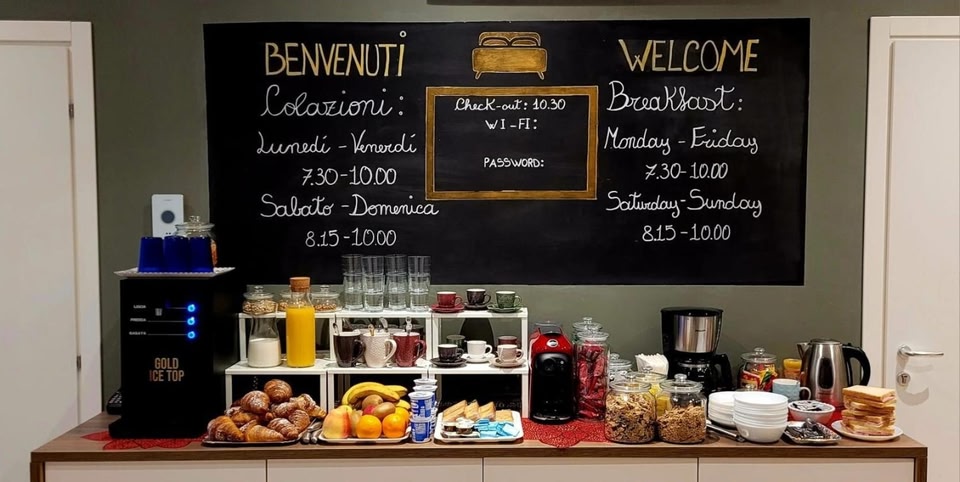 BENVENUTI
Colazioni:
Lunedí - Venerdí
7.30-10.00
Sabato - Domenica
8.15-10.00
Check-out: 10.30
WI-FI:
PASSWORD:
WELCOME
Breakfast:
Monday - Friday
7.30-10.00
Saturday-Sunday
8.15-10.00
GOLD
ICE TOP